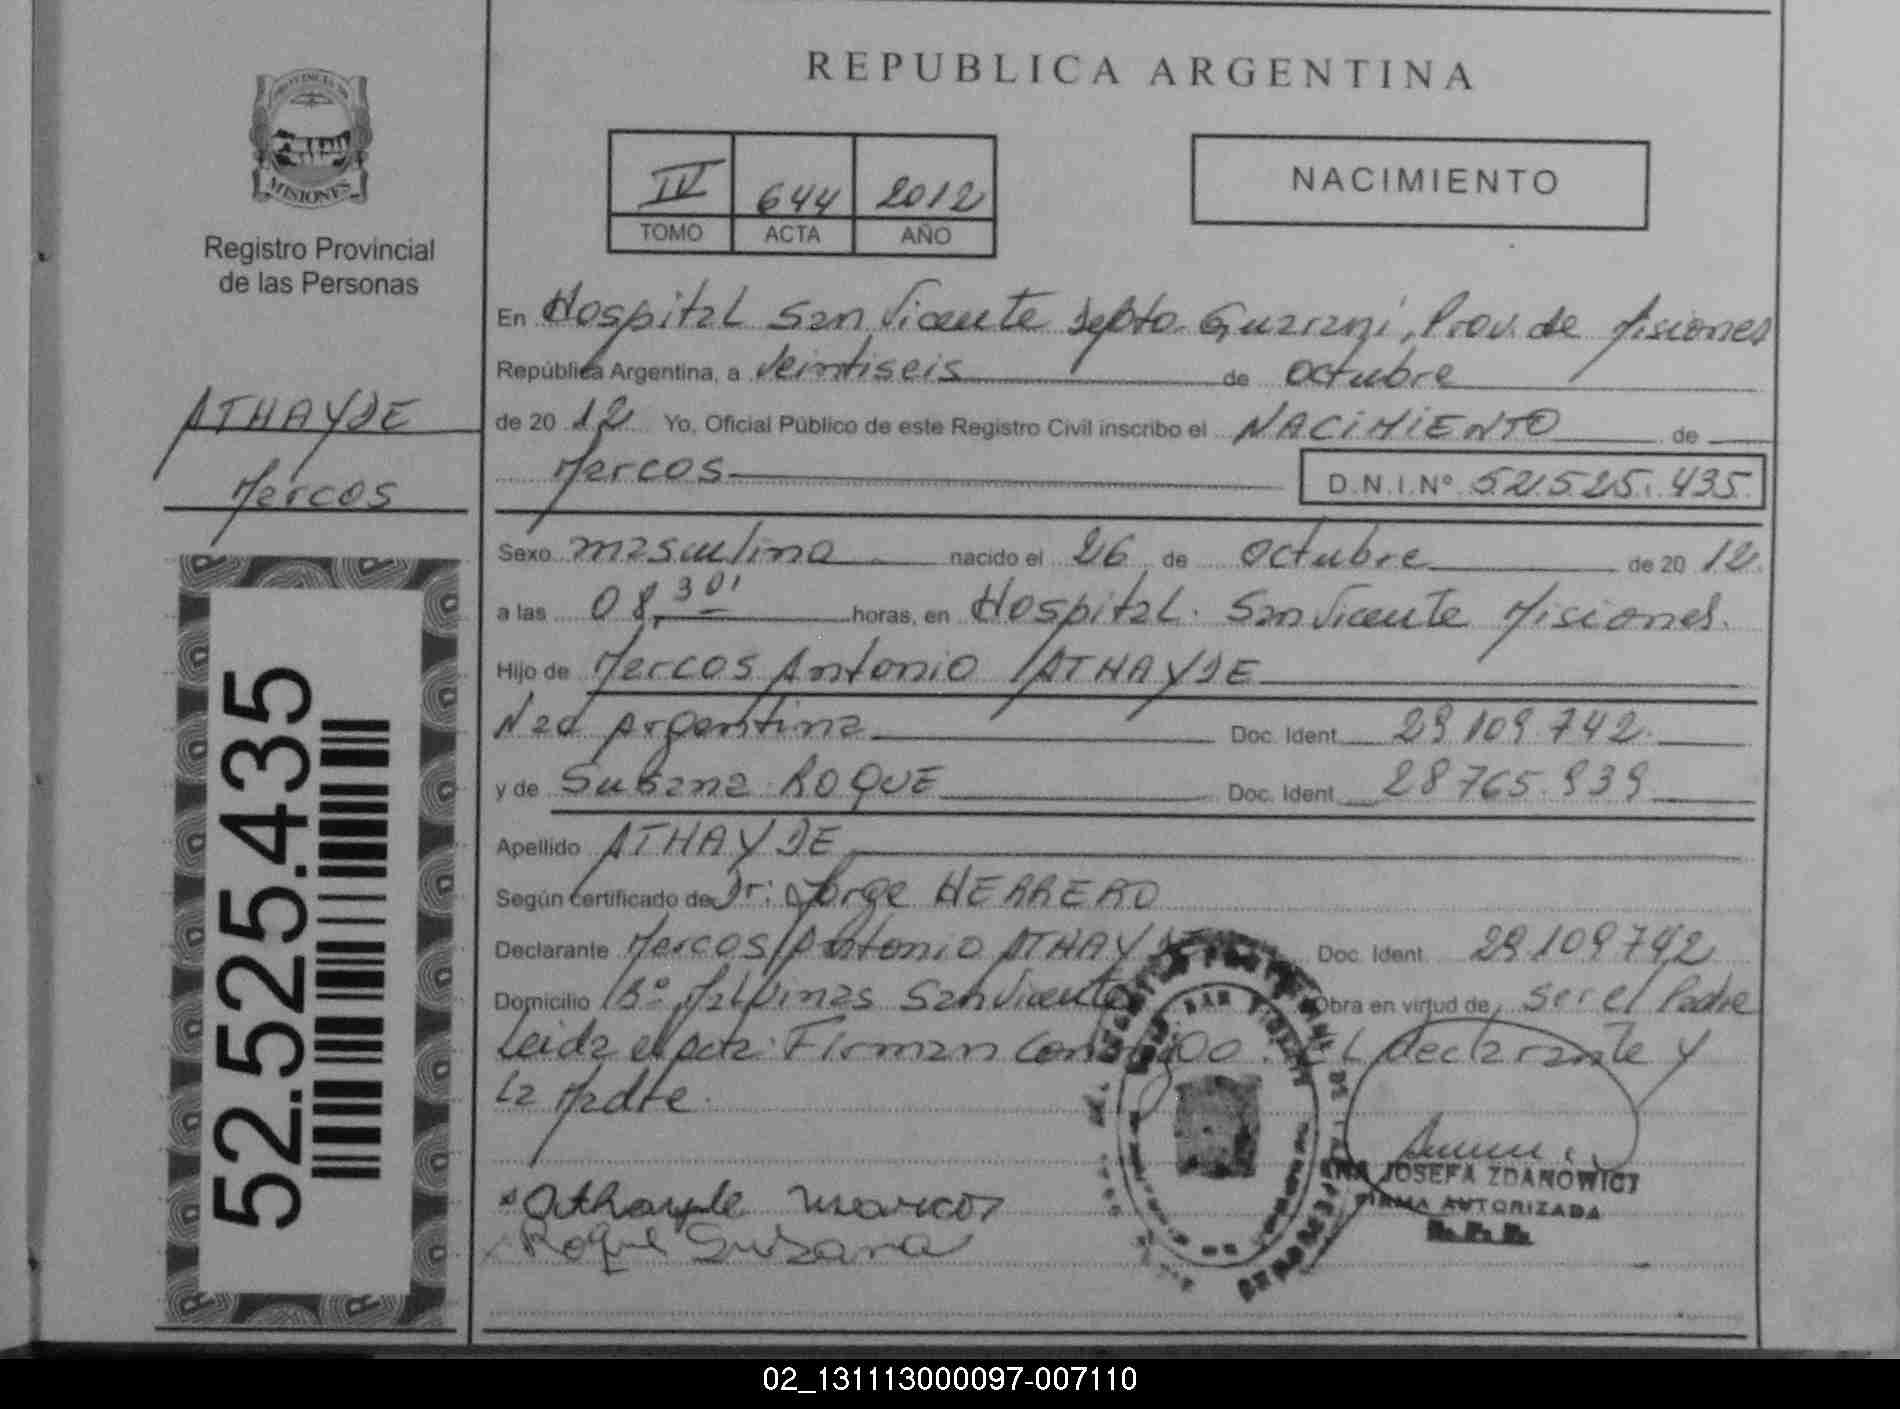 PROVINCIA DE
MISIONES
Registro Provincial
de las Personas
ATHAYDE
Marcos
52.525.435
REPUBLICA ARGENTINA
IV 644 2012
TOMO ACTA AÑO
NACIMIENTO
En Hospital San Vicente Depto. Guarani, Prov. de Misiones
República Argentina, a Veintiseis de octubre
de 20 12 Yo, Oficial Público de este Registro Civil inscribo el NACIMIENTO de
Marcos D.N.I.Nº 52.525.435.
Sexo masculino nacido el 26 de octubre de 20 12.
a las 08,30' horas, en Hospital. San Vicente Misiones.
Hijo de Marcos Antonio ATHAYDE
Nac Argentina Doc. Ident. 29.109.742.
y de Susana ROQUE Doc. Ident. 28765.939
Apellido ATHAYDE
Según certificado de Dr: Jorge HERRERO
Declarante Marcos Antonio ATHAYDE Doc. Ident. 29109742
Domicilio Bº Malvinas San Vicente Obra en virtud de ser el Padre
Leida el acta: Firman conmigo. El declarante y
la Madre.
Athayde marcos
Roque Susana
ANA JOSEFA ZDANOWICZ
FIRMA AUTORIZADA
R.P.P.
02_131113000097-007110